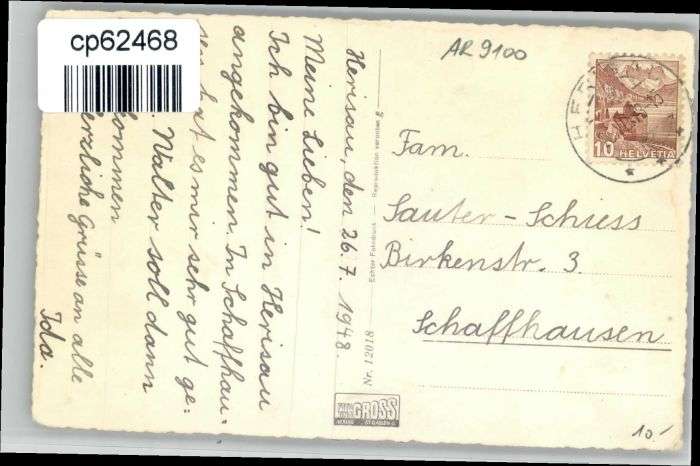 cp62468
AR 9100
Herisau, den 26.7. 1948.
Meine Lieben!
Ich bin gut in Herisau
angekommen. In Schaffhau-
sen hat es mir sehr gut ge-
Walter soll dann
kommen
Herzliche Grüsse an alle
Ida.
Nr. 12018
Echter Fotodruck — Reproduktion verboten
GROSS
ST. GALLEN
10
HELVETIA
Fam.
Sauter-Schiess
Birkenstr. 3.
Schaffhausen
10.-